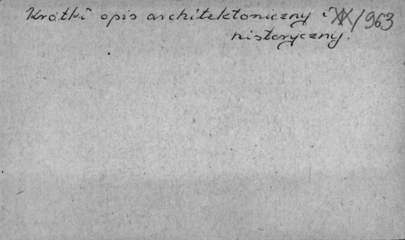 Krótki opis architektoniczny i XX/963
historyczny.